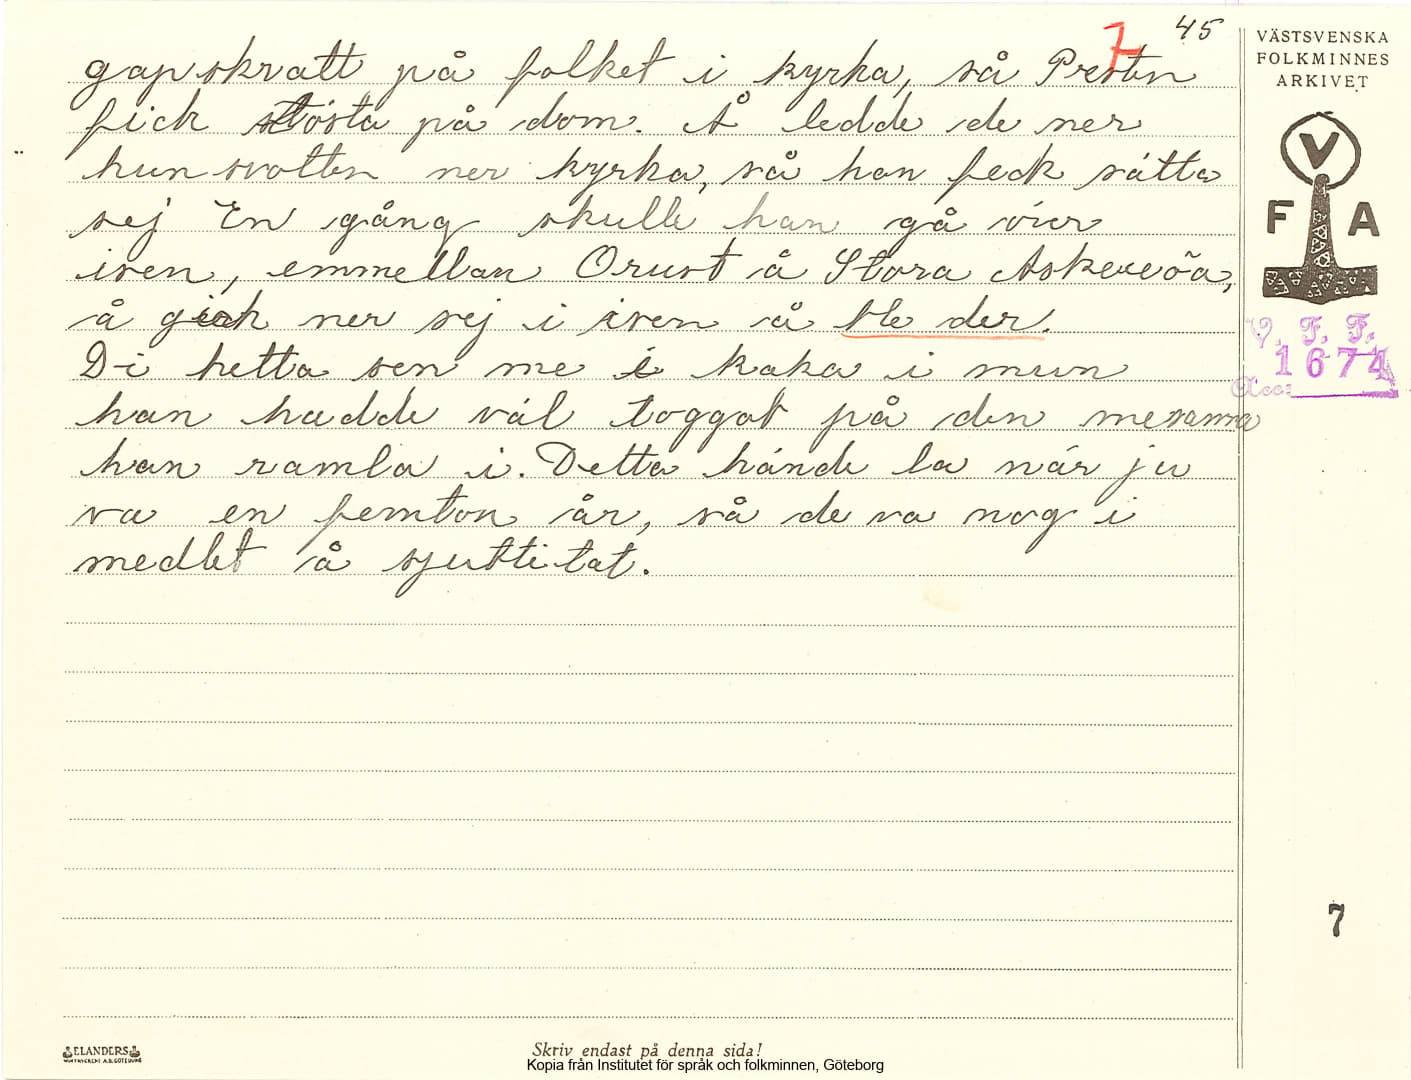 7 45
gapskratt på folket i kyrka, så Presten
fick tösta på dom. Å ledde de ner
hunsvotten ner kyrka, så han feck sätta
sej En gång skulle han gå över
isen, emmellan Orust å Stora Askeröa,
å gick ner sej i isen å ble der.
Di hetta sen me kaka i mun
han hadde väl toggat på den mesamma
han ramla i. Detta hände la när ju
va en femton år, så de va nog i
medlet å sjuttitat.
VÄSTSVENSKA
FOLKMINNES
ARKIVET
V
F A
V. F. F.
1674
Acc:
7
ELANDERS
Skriv endast på denna sida!
Kopia från Institutet för språk och folkminnen, Göteborg